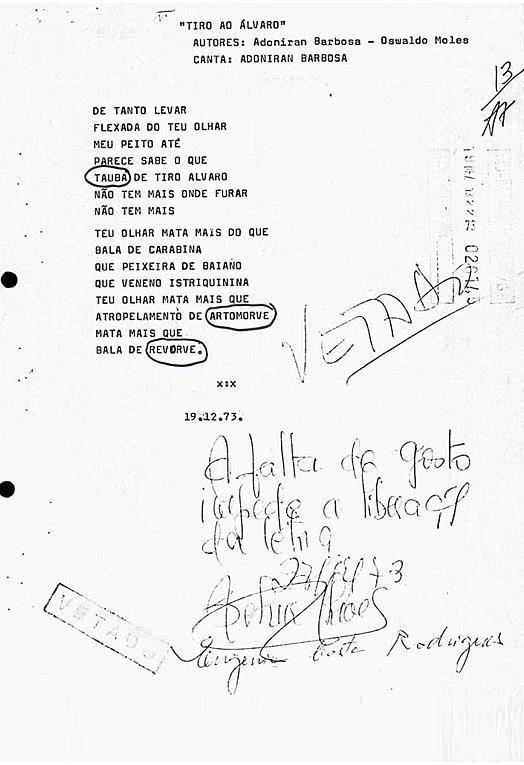 "TIRO AO ÁLVARO"
AUTORES: Adoniran Barbosa - Oswaldo Moles
CANTA: ADONIRAN BARBOSA
13
DE TANTO LEVAR
FLEXADA DO TEU OLHAR
MEU PEITO ATÉ
PARECE SABE O QUE
TAUBA DE TIRO ALVARO
NÃO TEM MAIS ONDE FURAR
NÃO TEM MAIS
TEU OLHAR MATA MAIS DO QUE
BALA DE CARABINA
QUE PEIXEIRA DE BAIANO
QUE VENENO ISTRIQUININA
TEU OLHAR MATA MAIS QUE
ATROPELAMENTO DE ARTOMORVE
MATA MAIS QUE
BALA DE REVORVE.
VETADA
x:x
19.12.73.
A falta de gosto
impede a liberação
da letra
VETADO
Eugenia Costa Rodrigues